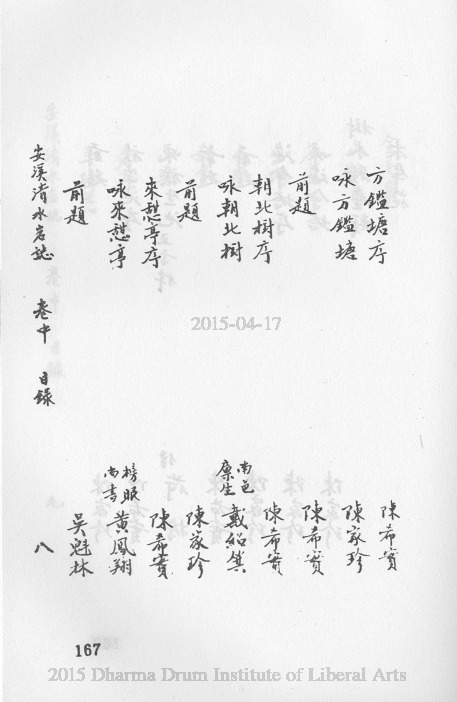 方鑑塘序 陳希實
咏方鑑塘 陳家珍
前題 陳希實
朝北樹序 陳希實
咏朝北樹 南邑廩生 戴紹箕
前題 陳家珍
來憇亭序 陳希實
咏來憇亭 榜眼尚書 黃鳳翔
前題 吳魁林
安溪清水岩誌 卷中 目錄 八
167
2015-04-17
2015 Dharma Drum Institute of Liberal Arts